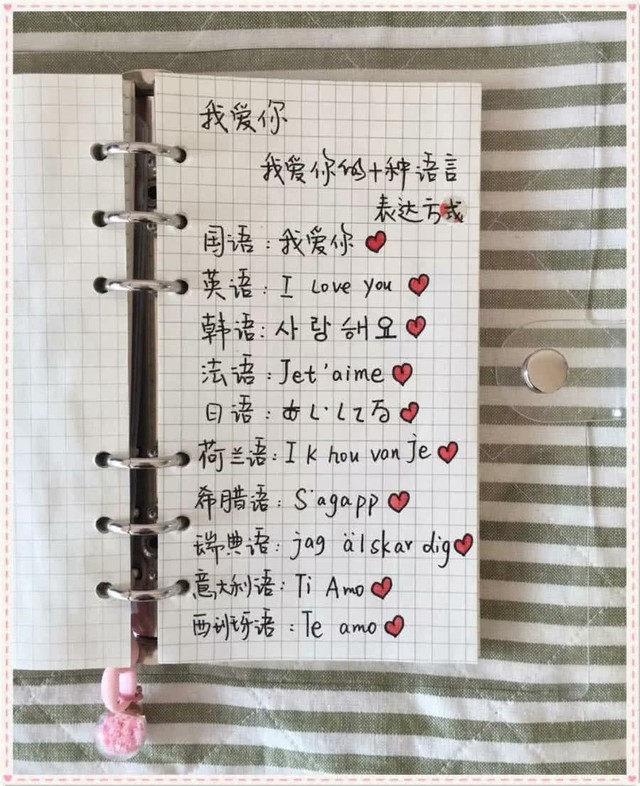 我爱你
我爱你的十种语言
表达方式
国语：我爱你
英语：I Love you
韩语：사랑해요
法语：Jet'aime
日语：あいしてる
荷兰语：I k hou van je
希腊语：S'agapp
瑞典语：jag älskar dig
意大利语：Ti Amo
西班牙语：Te amo